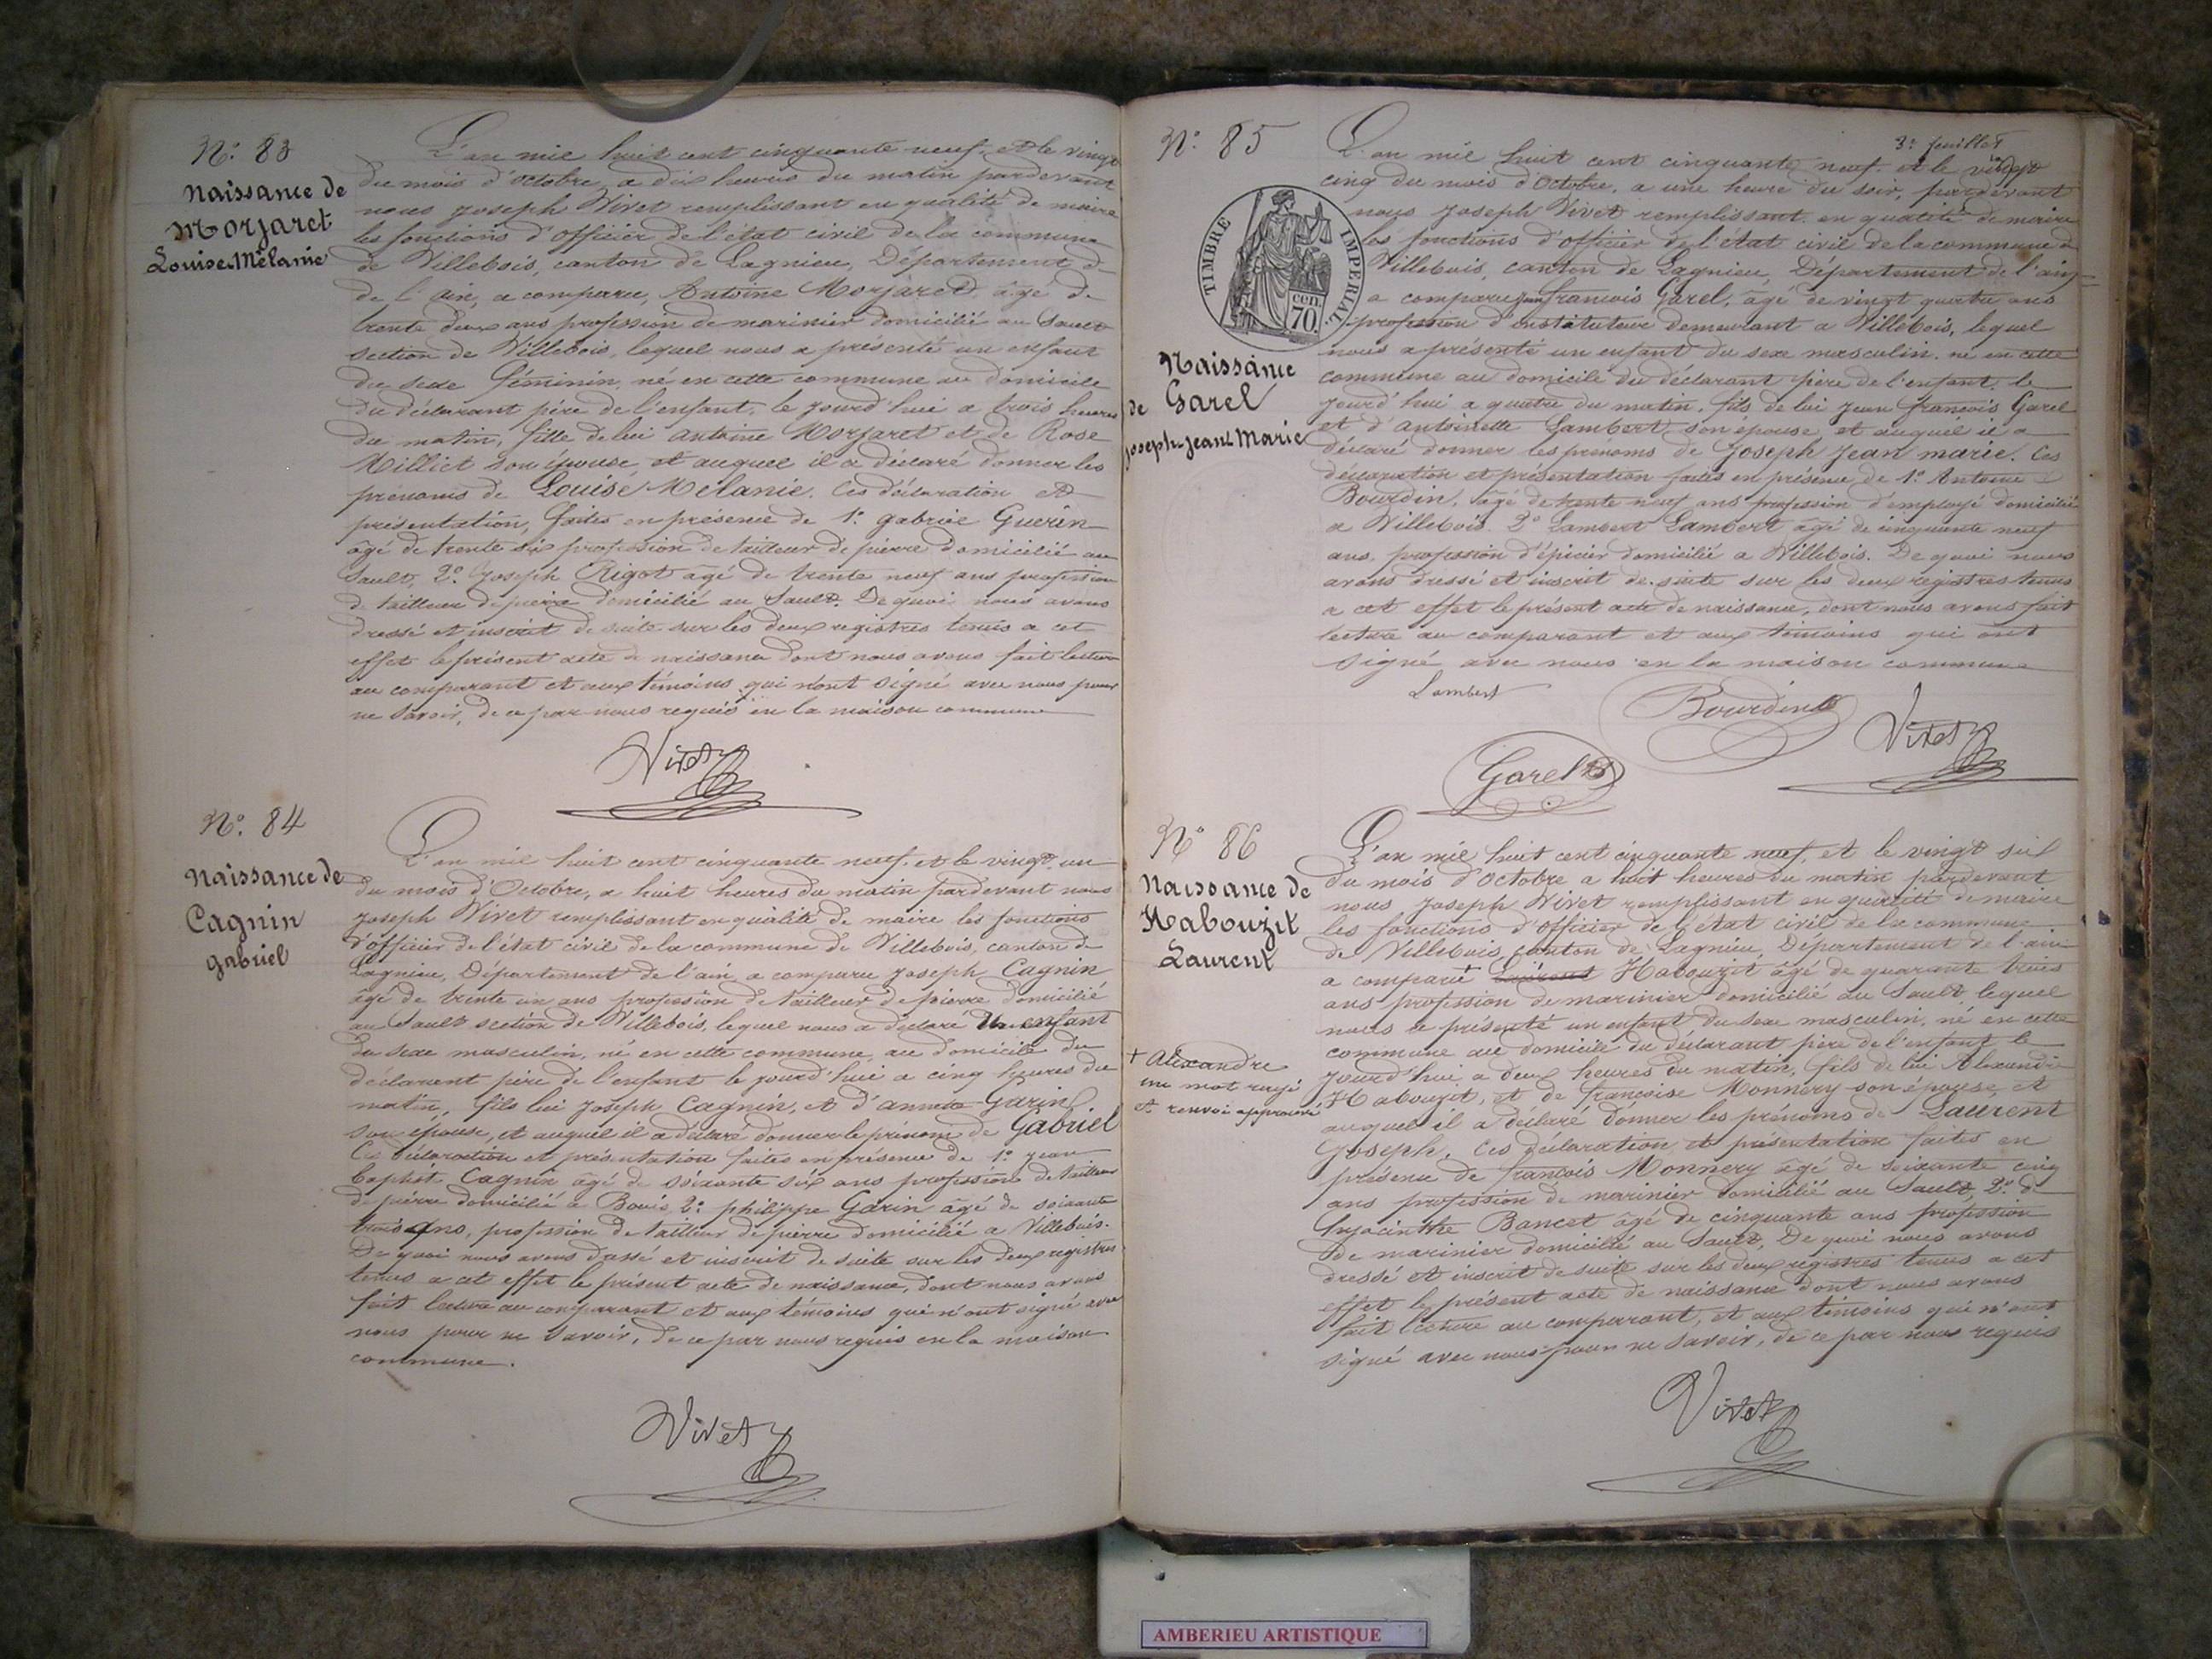 N.° 83
Naissance de
Morjaret
Louise Mélanie
L'an mil huit cent cinquante neuf, et le vingt
du mois d'octobre, a dix heures du matin pardevant
nous Joseph Vivet remplissant en qualité de maire
les fonctions d'officier de l'état civil de la commune
de Villebois, canton de Lagnieu, Département d
de l'ain, a comparu, Antoine Morjaret, âgé de
trente deux ans profession de marinier domicilié au Sault
section de Villebois, lequel nous a présenté un enfant
du sexe féminin, né en cette commune au domicile
du déclarant père de l'enfant, le jourd'hui a trois heures
du matin, fille de lui Antoine Morjaret et de Rose
Milliet son épouse, et auquel il a déclaré donner les
prénoms de Louise Mélanie. Ces déclaration et
présentation, faites en présence de 1.° gabriel Guerin
âgé de trente six profession de tailleur de pierre domicilié au
Sault, 2.° Joseph Rigot âgé de trente neuf ans profession
de tailleur de pierre domicilié au Sault. De quoi nous avons
dressé et inscrit de suite sur les deux registres tenus a cet
effet le présent acte de naissance dont nous avons fait lecture
au comparant et aux témoins qui n'ont signé avec nous pour
ne savoir, de ce par nous requis en la maison commune
Vivet
N.° 84
Naissance de
Cagnin
gabriel
L'an mil huit cent cinquante neuf, et le vingt un
du mois d'Octobre, a huit heures du matin pardevant nous
Joseph Vivet remplissant en qualité de maire les fonctions
d'officier de l'état civil de la commune de Villebois, canton de
Lagnieu, Département de l'ain, a comparu Joseph Cagnin
âgé de trente un ans profession de tailleur de pierre domicilié
au Sault section de Villebois, lequel nous a déclaré Un enfant
du sexe masculin, né en cette commune, au domicile du
déclarant père de l'enfant le jourd'hui a cinq heures du
matin, fils lui Joseph Cagnin, et d'annette Garin
son épouse, et auquel il a déclaré donner le prénom de Gabriel
Ces déclaration et présentation faites en présence de 1.° jean
baptist Cagnin âgé de soixante six ans profession de tailleur
de pierre domicilié à Bouis, 2.° philippe Garin âgé de soixante
trois ans, profession de tailleur de pierre domicilié a Villebois.
De quoi nous avons dressé et inscrit de suite sur les deux registres
tenus a cet effet le présent acte de naissance, dont nous avons
fait lecture au comparant et aux témoins qui n'ont signé avec
nous pour ne savoir, de ce par nous requis en la maison
commune.
Vivet
3.e feuillet
N.° 85
TIMBRE IMPERIAL
cen.
70
Naissance
de Garel
Joseph Jean Marie
L'an mil huit cent cinquante neuf. et le vingt
cinq du mois d'Octobre, a une heure du soir, pardevant
nous Joseph Vivet remplissant en qualité de maire
les fonctions d'officier de l'état civil de la commune d
Villebois, canton de Lagnieu, Département de l'ain
a comparu jean françois Garel, âgé de vingt quatre ans
profession d'instituteur demeurant a Villebois, lequel
nous a présenté un enfant du sexe masculin. né en cette
commune au domicile du déclarant père de l'enfant, le
jourd'hui a quatre du matin, fils de lui jean françois Garel
et d'Antoinette Lambert son épouse, et auquel il a
déclaré donner les prénoms de Joseph Jean marie. Ces
déclaration et présentation faites en présence de 1.° Antoine
Bourdin, âgé de trente neuf ans profession d'employé domicilié
a Villebois 2.° Lambert Lambert âgé de cinquante neuf
ans, profession d'épicier domicilié a Villebois. De quoi nous
avons dressé et inscrit de suite sur les deux registres tenus
a cet effet le présent acte de naissance, dont nous avons fait
lecture au comparant et aux témoins qui ont
signé avec nous en la maison commune
Lambert
Bourdin
Vivet
Garel
N° 86
Naissance de
Habouzit
Laurent
L'an mil huit cent cinquante neuf, et le vingt six
du mois d'octobre a huit heures du matin pardevant
nous Joseph Vivet remplissant en qualité de maire
les fonctions d'officier de l'état civil de la commune
de Villebois, canton de Lagnieu, Département de l'ain
a comparu + Habouzit âgé de quarante trois
ans profession de marinier domicilié au Sault, lequel
nous a présenté un enfant du sexe masculin, né en cette
commune au domicile du déclarant père de l'enfant le
jourd'hui, a deux heures du matin, fils de lui Alexandre
Habouzit, et de françoise Monnery son épouse, et
auquel il a déclaré donner les prénoms de Laurent
Joseph. Ces déclaration et présentation faites en
présence de françois Monnery âgé de soixante cinq
ans profession de marinier domicilié au Sault, 2.° de
hyacinthe Bancet âgé de cinquante ans profession
de marinier domicilié au Sault, De quoi nous avons
dressé et inscrit de suite sur les deux registres tenus a cet
effet le présent acte de naissance dont nous avons
fait lecture au comparant, et aux témoins qui n'ont
signé avec nous pour ne savoir, de ce par nous requis
+ Alexandre
un mot rayé
et renvoi approuvé
Vivet
AMBERIEU ARTISTIQUE